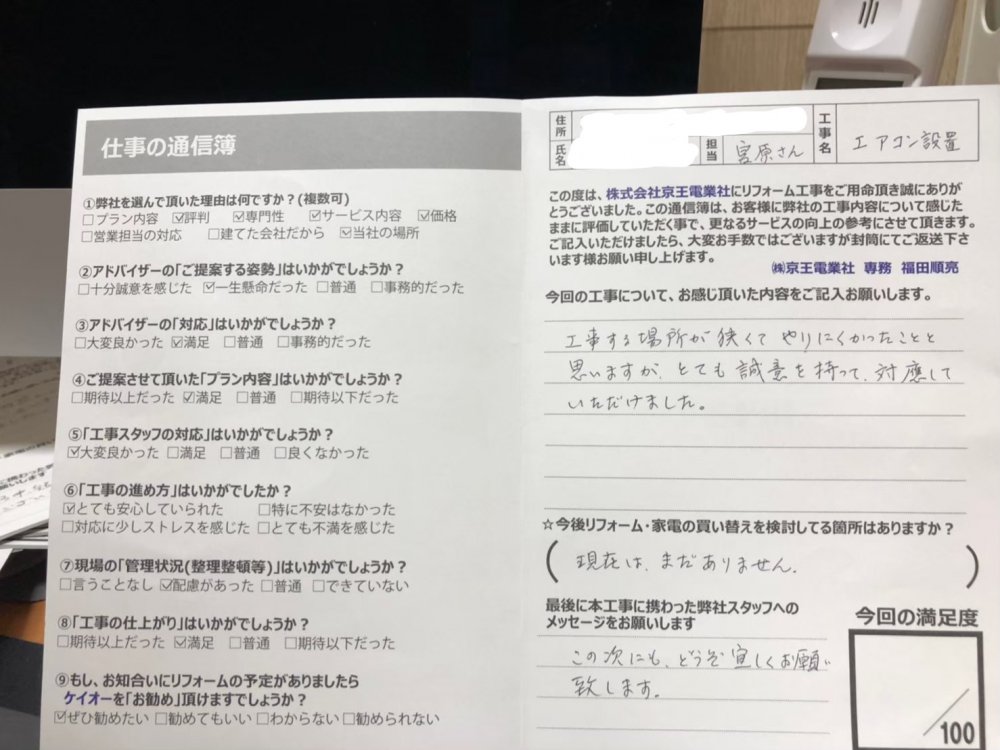 仕事の通信簿
①弊社を選んで頂いた理由は何ですか？(複数可)
□プラン内容 ☑評判 ☑専門性 ☑サービス内容 ☑価格
□営業担当の対応 □建てた会社だから ☑当社の場所
②アドバイザーの「ご提案する姿勢」はいかがでしょうか？
□十分誠意を感じた ☑一生懸命だった □普通 □事務的だった
③アドバイザーの「対応」はいかがでしょうか？
□大変良かった ☑満足 □普通 □事務的だった
④ご提案させて頂いた「プラン内容」はいかがでしょうか？
□期待以上だった ☑満足 □普通 □期待以下だった
⑤「工事スタッフの対応」はいかがでしょうか？
☑大変良かった □満足 □普通 □良くなかった
⑥「工事の進め方」はいかがでしたか？
☑とても安心していられた □特に不安はなかった
□対応に少しストレスを感じた □とても不満を感じた
⑦現場の「管理状況(整理整頓等)」はいかがでしょうか？
□言うことなし ☑配慮があった □普通 □できていない
⑧「工事の仕上がり」はいかがでしょうか？
□期待以上だった ☑満足 □普通 □期待以下だった
⑨もし、お知合いにリフォームの予定がありましたら
ケイオーを「お勧め」頂けますでしょうか？
☑ぜひ勧めたい □勧めてもいい □わからない □勧められない
住所
氏名
担当 宮原さん
工事名 エアコン設置
この度は、株式会社京王電業社にリフォーム工事をご用命頂き誠にありが
とうございました。この通信簿は、お客様に弊社の工事内容について感じた
ままに評価していただく事で、更なるサービスの向上の参考にさせて頂きます。
ご記入いただけましたら、大変お手数ではございますが封筒にてご返送下さ
います様お願い申し上げます。
㈱京王電業社 専務 福田順亮
今回の工事について、お感じ頂いた内容をご記入お願いします。
工事する場所が狭くてやりにくかったことと
思いますが、とても誠意を持って、対應して
いただけました。
☆今後リフォーム・家電の買い替えを検討してる箇所はありますか？
(現在は、まだありません.)
最後に本工事に携わった弊社スタッフへの
メッセージをお願いします
この次にも、どうぞ宜しくお願い
致します。
今回の満足度
/100